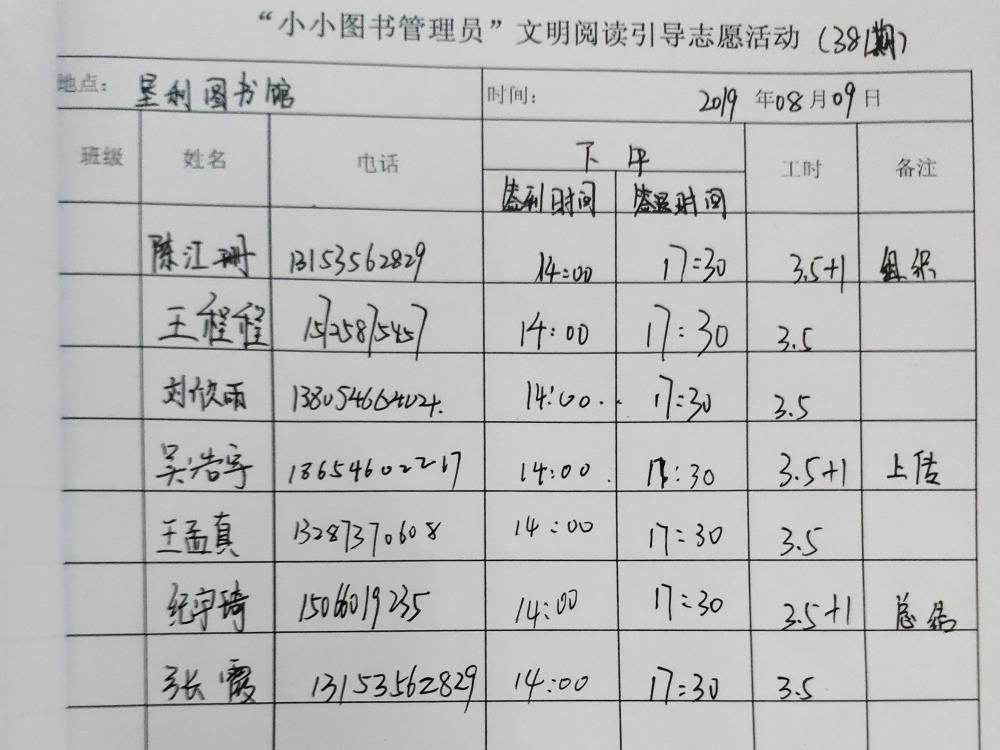 “小小图书管理员”文明阅读引导志愿活动（381期）
地点： 垦利图书馆 时间： 2019 年08月09日
班级 姓名 电话 下午 工时 备注
签到时间 签退时间
陈江珊 13153562829 14:00 17:30 3.5+1 组织
王程程 15725875457 14:00 17:30 3.5
刘欣雨 13805466402 14:00 17:30 3.5
吴浩宇 18654602217 14:00 17:30 3.5+1 上传
王孟真 13287370608 14:00 17:30 3.5
纪宇琦 15066019235 14:00 17:30 3.5+1 总结
张霞 13153562829 14:00 17:30 3.5